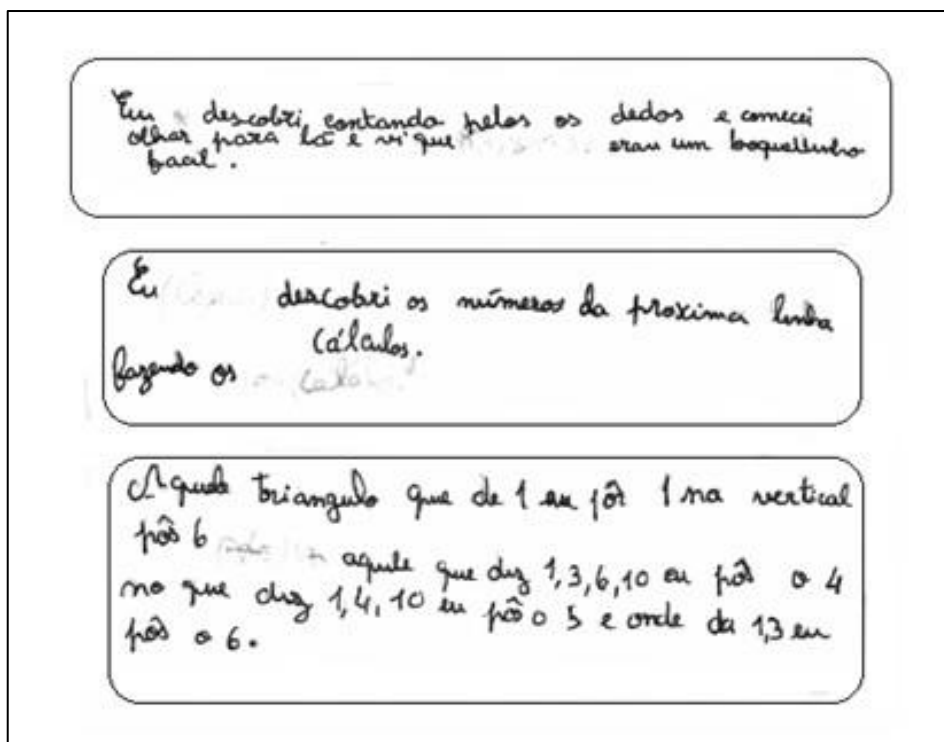 Eu descobri contando pelos os dedos e comecei
olhar para lá e vi que erau um boquelhinho
facil.
Eu descobri os números da proxima linha
fazendo os cálculos.
Aquele triangulo que de 1 eu pôr 1 na vertical
pôs 6 aquele que diz 1,3,6,10 eu pôs o 4
no que diz 1,4,10 eu pôs o 5 e onde da 1,3 eu
pôs o 6.